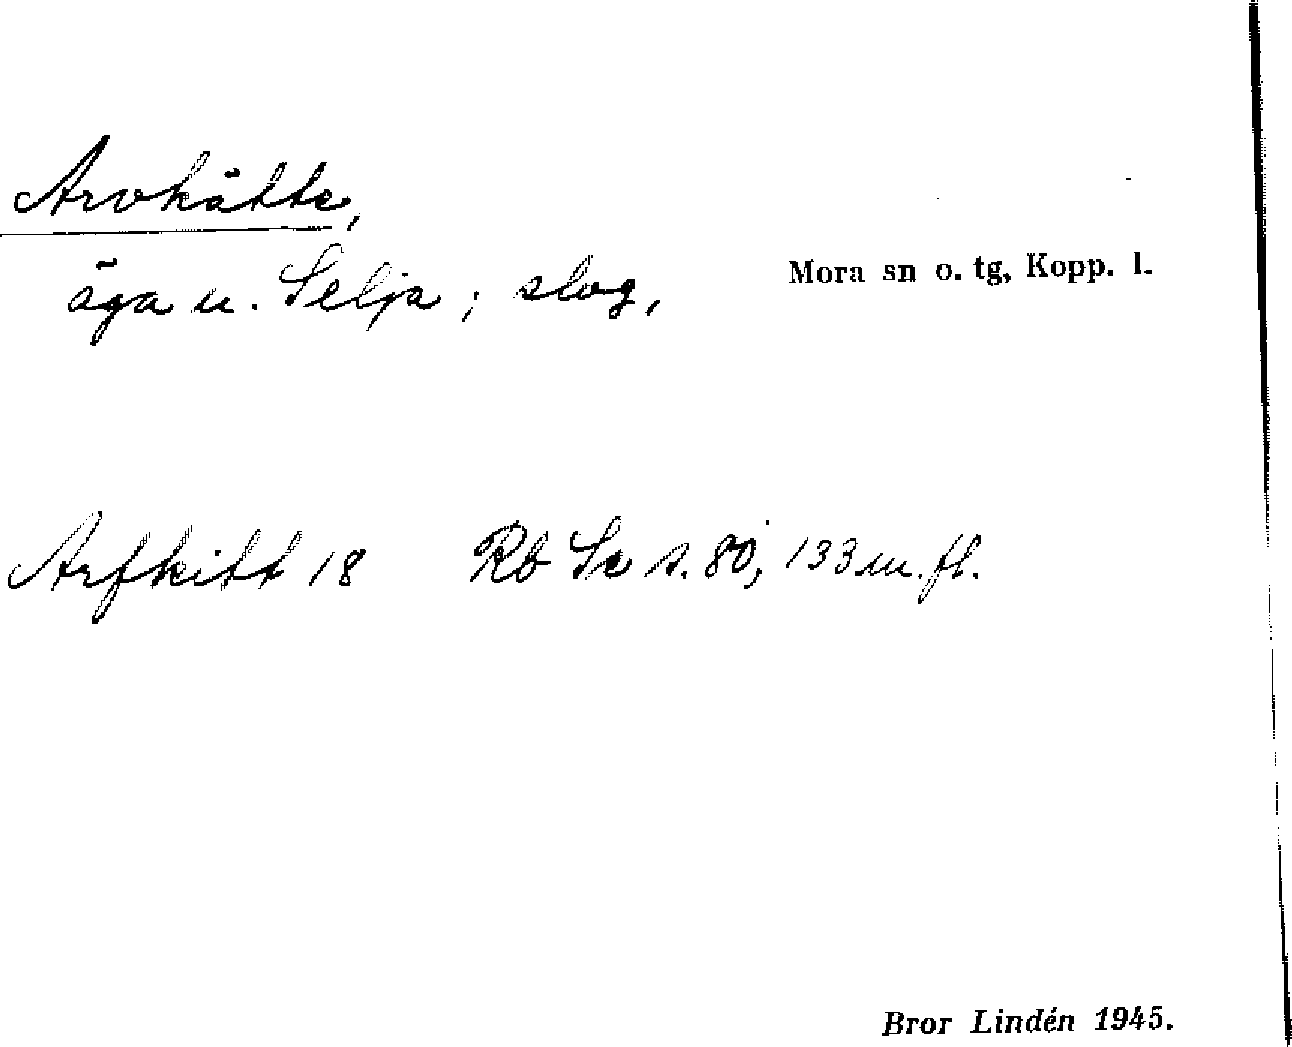 Arvkätte,
äga u. Selja; slog,
Mora sn o. tg, Kopp. l.
Arfkitt 18 Rb Se s. 80, 133 m. fl.
Bror Lindén 1945.